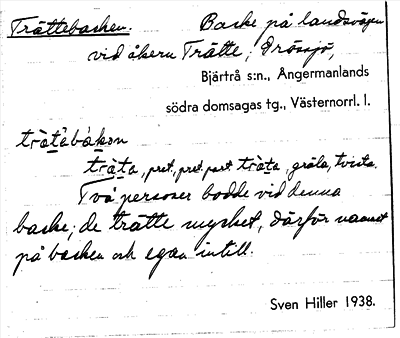 Trättebacken. Backe på landsvägen
vid åkern Trätte, Drössjö,
Bjärtrå s:n., Ångermanlands
södra domsagas tg., Västernorrl. l.
trä̀tèbákən
trä̀ta, pret., pret. part. trä̀ta, gräla, tvista.
Två personer bodde vid denna
backe; de trätte mycket, därför namnet
på backen och egen intill.
Sven Hiller 1938.